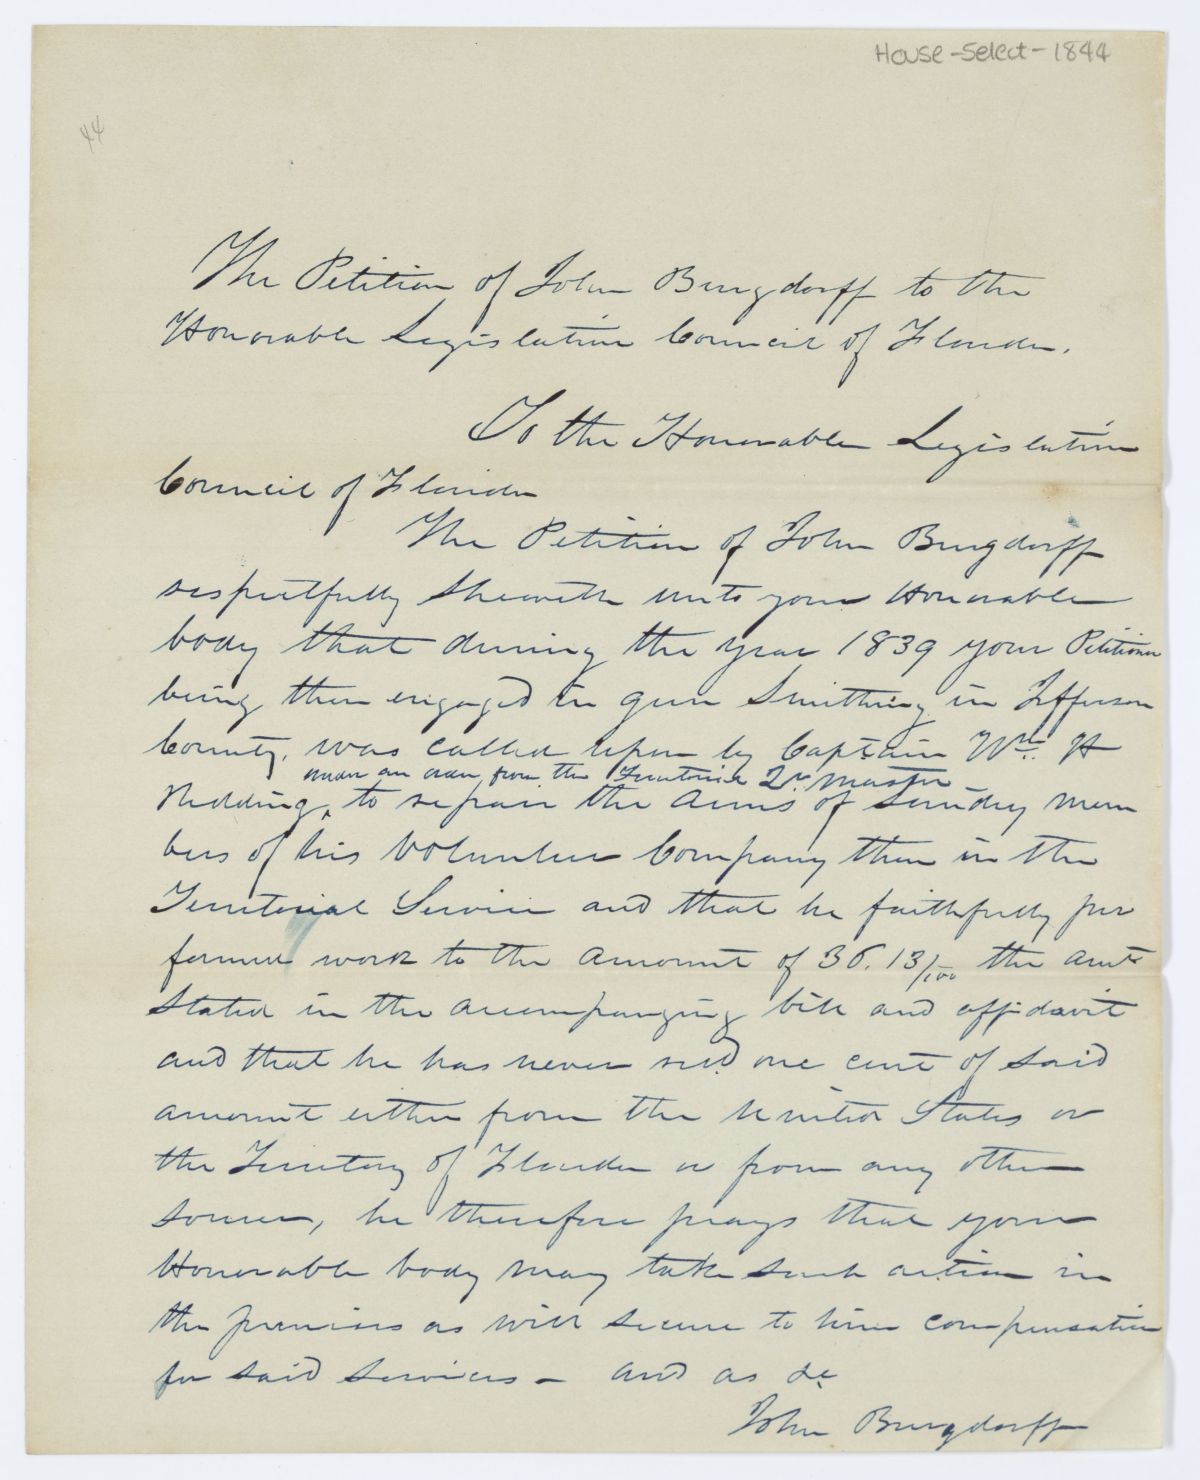 House-Select-1844
44
The Petition of John Burgdorff to the
Honorable Legislative Council of Florida.
To the Honorable Legislative
Council of Florida
The Petition of John Burgdorff
respectfully sheweth unto your Honorable
body that during the year 1839 your Petitioner
being then engaged in gun Smithing in Jefferson
County, was called upon by Captain Wm. H
under an order from the Territorial Qr. Master
Redding, to repair the arms of sundry mem
bers of his Volunteer Company then in the
Territorial Service and that he faithfully per
formed work to the amount of 36.13/100 the amt
Stated in the accompanying bill and affidavit
and that he has never recd one cent of said
amount either from the United States or
the Territory of Florida or from any other
source, he therefore prays that your
Honorable body may take such action in
the premises as will secure to him compensation
for said services - and as &c
John Burgdorff